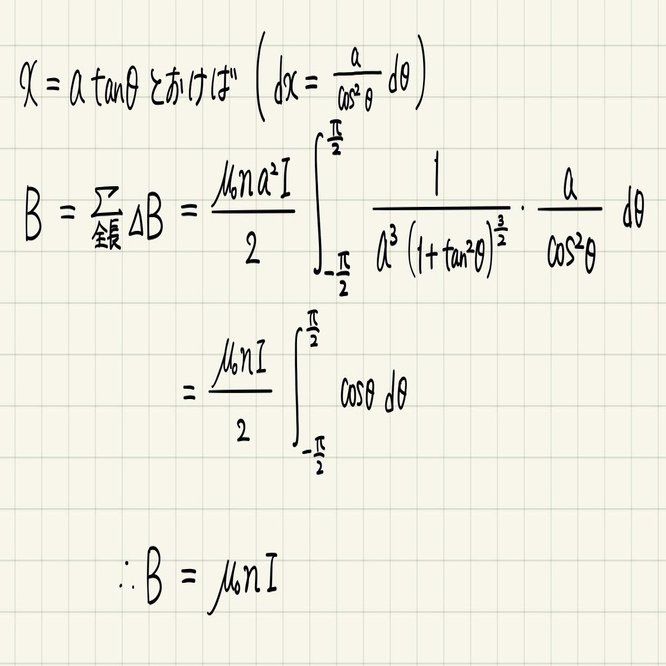 x = a tanθ とおけば (dx = a/cos²θ dθ)
B = Σ全長 ΔB = μ₀na²I/2 ∫_{-π/2}^{π/2} 1/(a³(1+tan²θ)^{3/2}) · a/cos²θ dθ
= μ₀nI/2 ∫_{-π/2}^{π/2} cosθ dθ
∴ B = μ₀nI